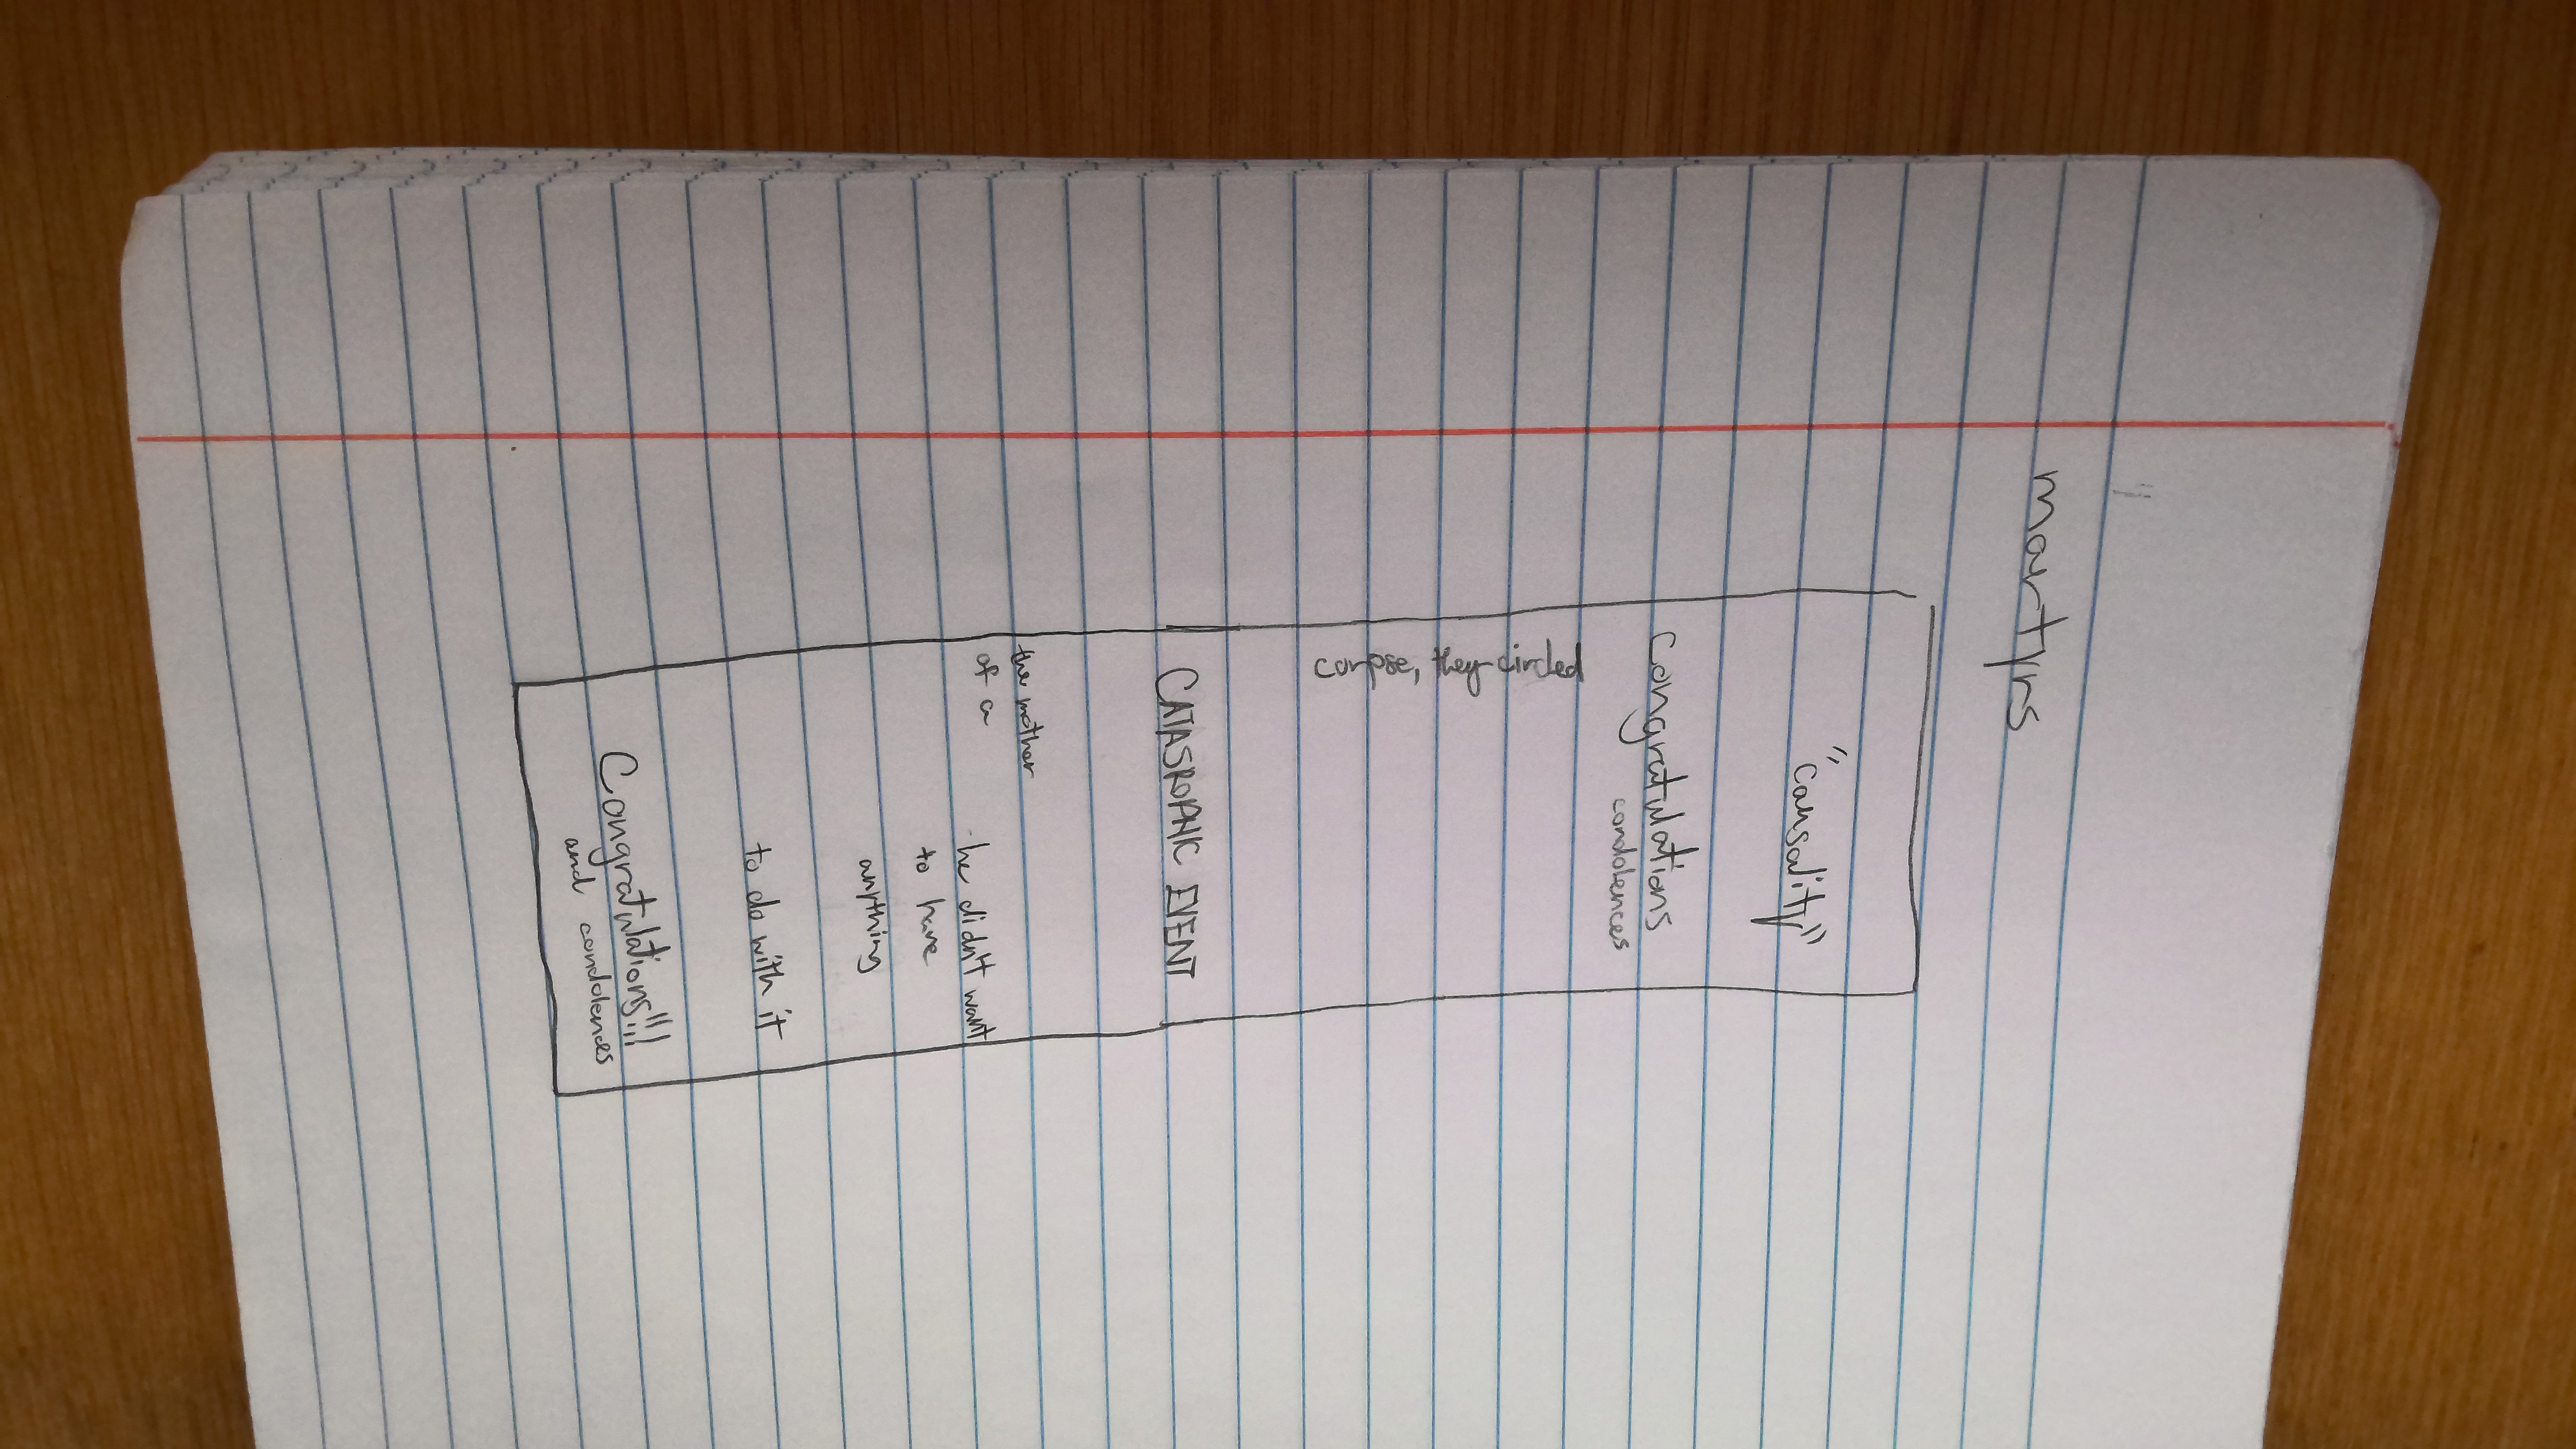 martyrs
"causality"
Congratulations
condolences
corpse, they circled
CATASROPHIC EVENT
the mother
of a
he didn't want
to have
anything
to do with it
Congratulations!!!
and condolences